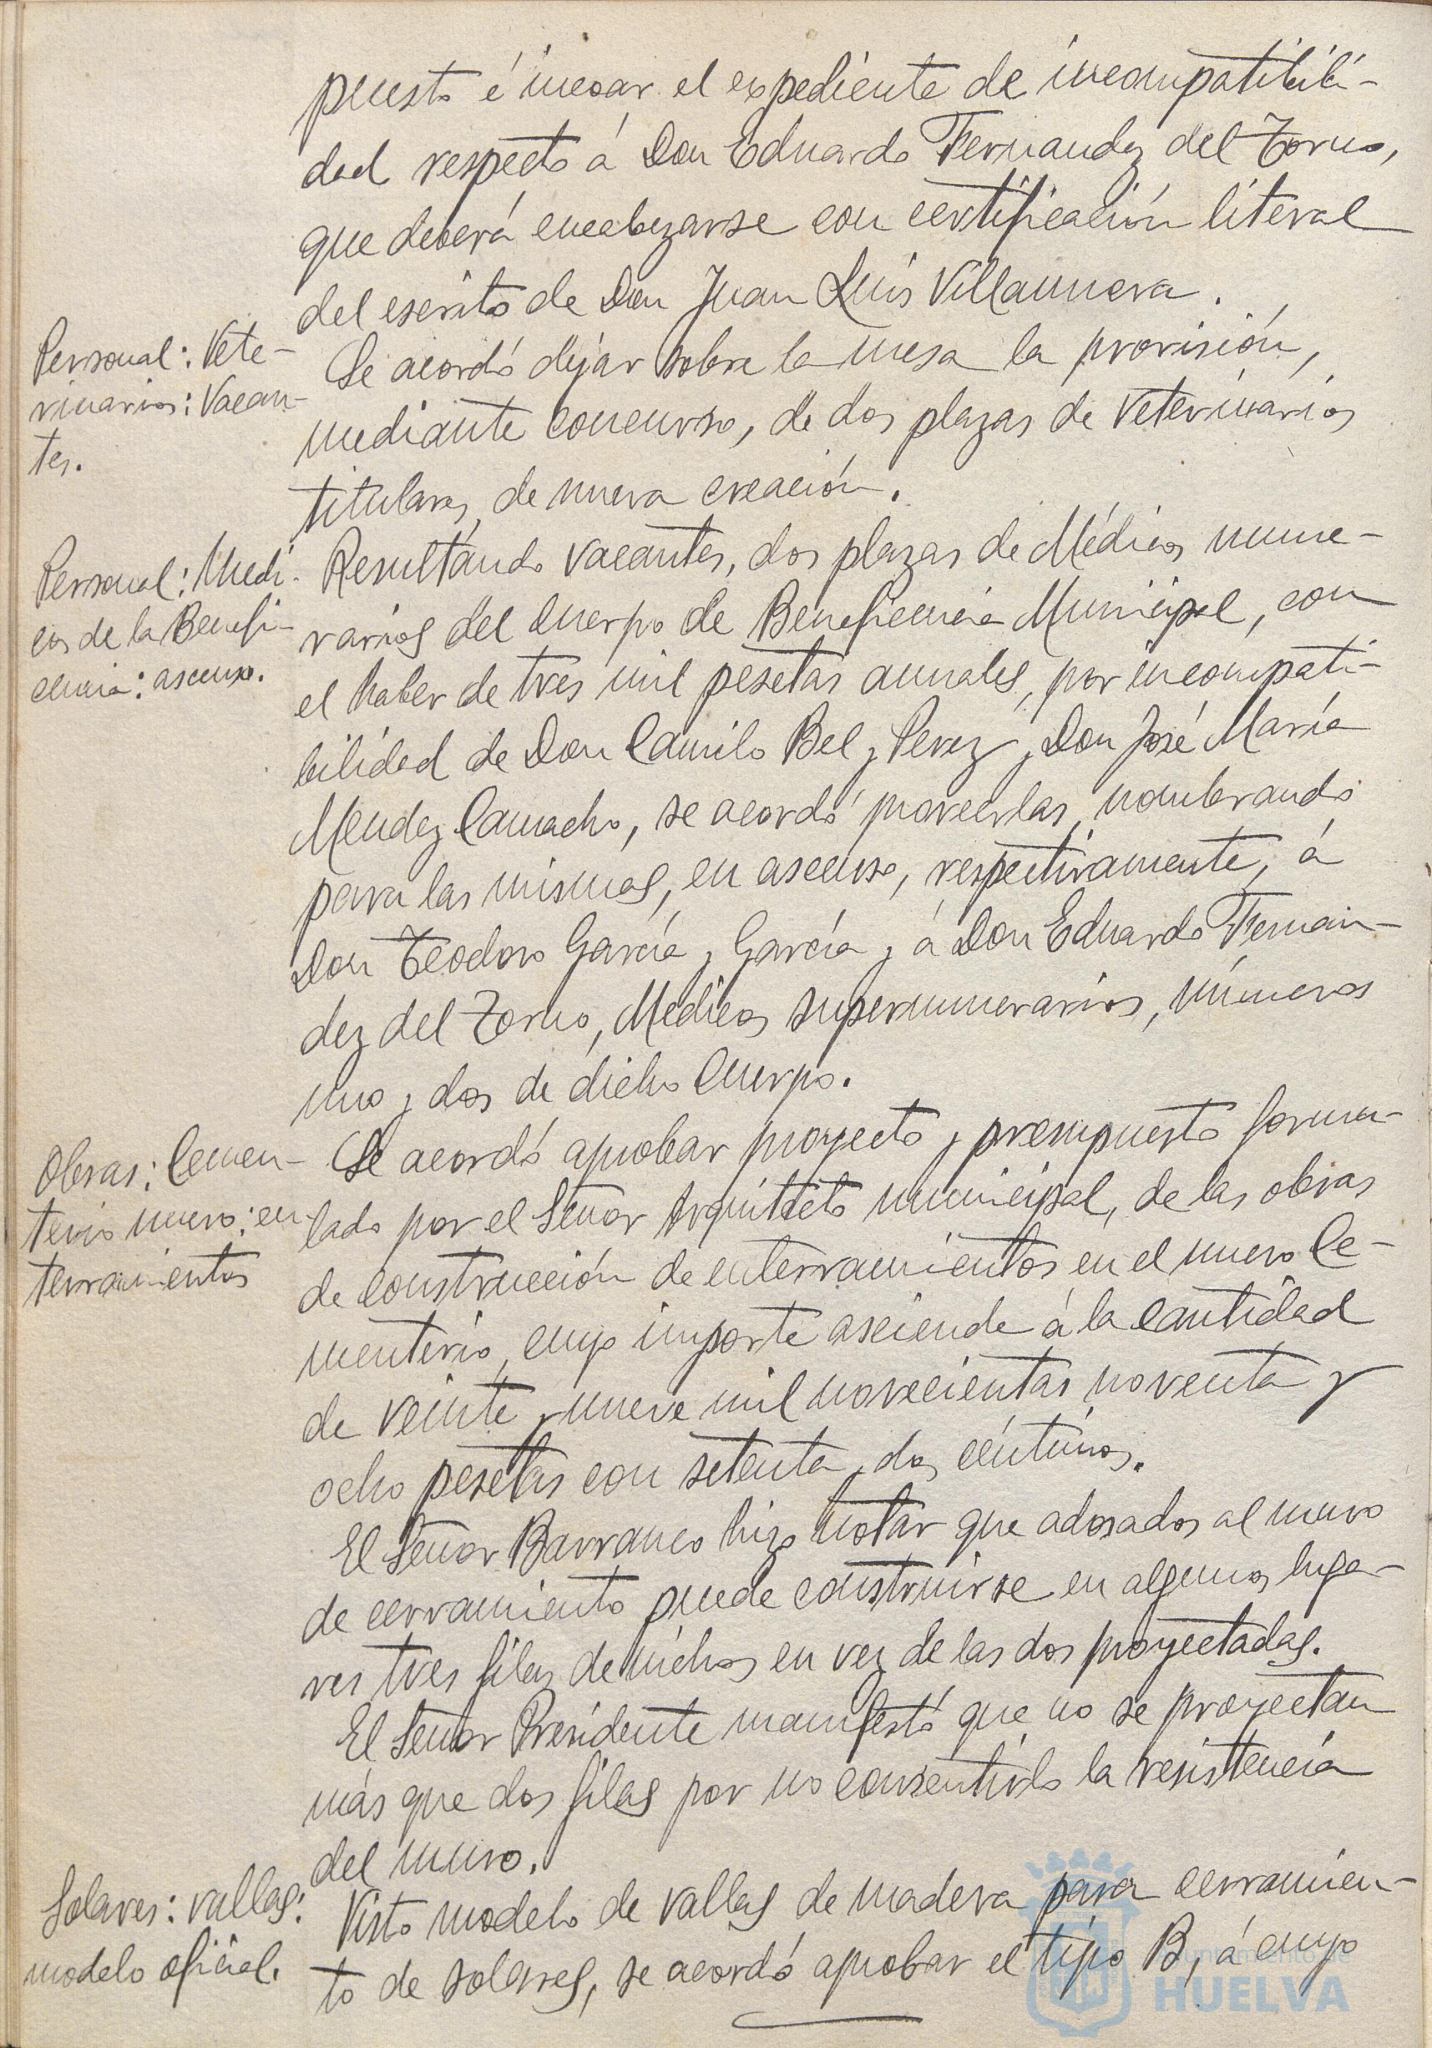 puesto é incoar el expediente de incompatibili-
dad respecto á Don Eduardo Fernandez del Torno,
que deberá encabezarse con certificación literal
del escrito de Don Juan Luis Villanueva.
Personal: Vete-
rinarios: Vacan-
tes.
Se acordó dejar sobre la mesa la provisión,
mediante concurso, de dos plazas de Veterinarios
titulares, de nueva creación.
Personal: Medi-
cos de la Benefi-
cencia: ascenso.
Resultando vacantes, dos plazas de Médicos nume-
rarios del Cuerpo de Beneficencia Municipal, con
el haber de tres mil pesetas anuales, por incompati-
bilidad de Don Camilo Bel y Perez y Don José María
Mendez Camacho, se acordó proveerlas, nombrando
para las mismas, en ascenso, respectivamente, á
Don Teodoro García y García y á Don Eduardo Fernan-
dez del Torno, Médicos supernumerarios, números
uno y dos de dicho Cuerpo.
Obras: Cemen-
terio nuevo: en-
terramientos
Se acordó aprobar proyecto y presupuesto formu-
lado por el Señor Arquitecto municipal, de las obras
de construcción de enterramientos en el nuevo Ce-
menterio, cuyo importe asciende á la cantidad
de veinte y nueve mil novecientas noventa y
ocho pesetas con setenta y dos céntimos.
El Señor Barranco hizo notar que adosados al muro
de cerramiento puede construirse en algunos luga-
res tres filas de nichos en vez de las dos proyectadas.
El Señor Presidente manifestó que no se proyectan
más que dos filas por no consentirlo la resistencia
del muro.
Solares: vallas:
modelo oficial.
Visto modelo de vallas de madera para cerramien-
to de solares, se acordó aprobar el tipo B, á cuyo
Ayuntamiento de
HUELVA